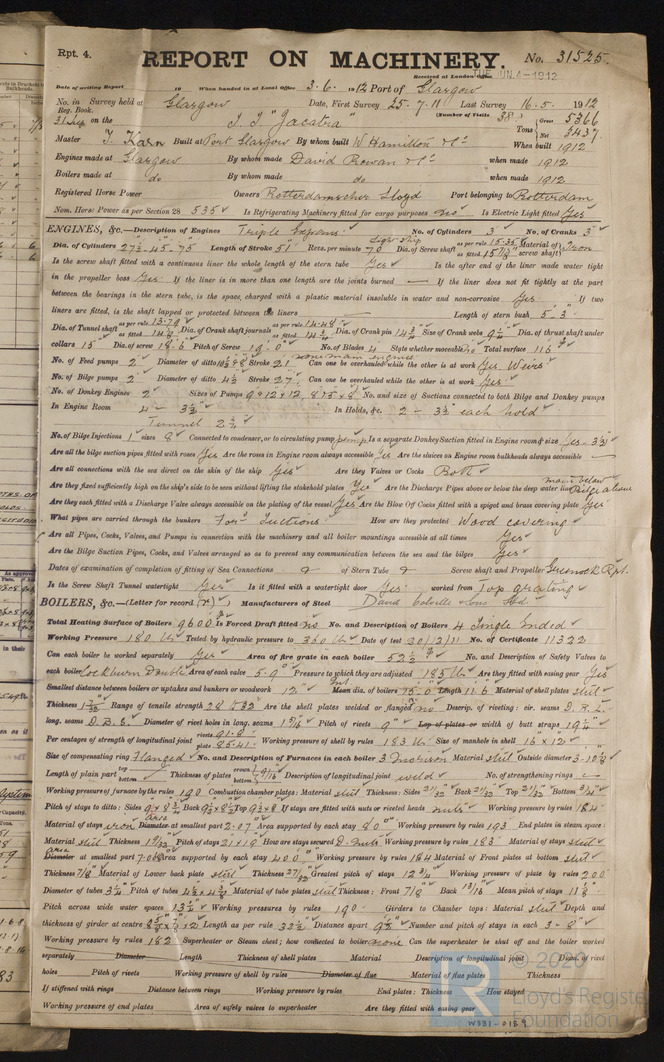 Rpt. 4.
REPORT ON MACHINERY. No. 31525.
Received at London Office TUE. JUN. 4-1912
Date of writing Report 19 When handed in at Local Office 3.6.1912 Port of Glasgow
No. in Survey held at Glasgow Date, First Survey 25.7.11 Last Survey 16.5.1912
Reg. Book. (Number of Visits 38)
31 Sup on the "Jacatra" Tons Gross 5366
Net 3437
Master T. Karn Built at Port Glasgow By whom built W Hamilton & Co When built 1912
Engines made at Glasgow By whom made David Rowan & Co when made 1912
Boilers made at do By whom made do when made 1912
Registered Horse Power Owners Rotterdamscher Lloyd Port belonging to Rotterdam
Nom. Horse Power as per Section 28 535 Is Refrigerating Machinery fitted for cargo purposes no Is Electric Light fitted Yes
ENGINES, &c.—Description of Engines Triple Expans. No. of Cylinders 3 No. of Cranks 3
Dia. of Cylinders 27½-45-75 Length of Stroke 51 Revs. per minute 70 Dia. of Screw shaft as per rule 15.35 Material of screw shaft Iron
as fitted
Is the screw shaft fitted with a continuous liner the whole length of the stern tube Yes Is the after end of the liner made water tight
in the propeller boss Yes If the liner is in more than one length are the joints burned — If the liner does not fit tightly at the part
between the bearings in the stern tube, is the space charged with a plastic material insoluble in water and non-corrosive Yes If two
liners are fitted, is the shaft lapped or protected between the liners — Length of stern bush 5-3
Dia. of Tunnel shaft as per rule 13.79 Dia. of Crank shaft journals as per rule 14.48 Dia. of Crank pin 14¾ Size of Crank webs Dia. of thrust shaft under
collars 15 Dia. of screw 18-6 Pitch of Screw 19-0 No. of Blades 4 State whether moveable no Total surface 116
No. of Feed pumps 2 Diameter of ditto Stroke 21 Can one be overhauled while the other is at work Yes. Weirs
No. of Bilge pumps 2 Diameter of ditto 4½ Stroke 27 Can one be overhauled while the other is at work Yes
No. of Donkey Engines 2 Sizes of Pumps No. and size of Suctions connected to both Bilge and Donkey pumps
In Engine Room 4 - 3½ In Holds, &c. 2 - 3½ each hold
Tunnel 2½
No. of Bilge Injections 1 sizes 8 Connected to condenser, or to circulating pump pump Is a separate Donkey Suction fitted in Engine room & size Yes - 3½
Are all the bilge suction pipes fitted with roses Yes Are the roses in Engine room always accessible Yes Are the sluices on Engine room bulkheads always accessible —
Are all connections with the sea direct on the skin of the ship Yes Are they Valves or Cocks Both
Are they fixed sufficiently high on the ship's side to be seen without lifting the stokehold plates Yes Are the Discharge Pipes above or below the deep water line main below Bilge above
Are they each fitted with a Discharge Valve always accessible on the plating of the vessel Yes Are the Blow Off Cocks fitted with a spigot and brass covering plate Yes
What pipes are carried through the bunkers For'd Suctions How are they protected Wood covering
Are all Pipes, Cocks, Valves, and Pumps in connection with the machinery and all boiler mountings accessible at all times Yes
Are the Bilge Suction Pipes, Cocks, and Valves arranged so as to prevent any communication between the sea and the bilges Yes
Dates of examination of completion of fitting of Sea Connections of Stern Tube Screw shaft and Propeller Greenock Rpt.
Is the Screw Shaft Tunnel watertight Yes Is it fitted with a watertight door Yes worked from Top grating
BOILERS, &c.—(Letter for record (r)) Manufacturers of Steel David Colville & Sons Ltd.
Total Heating Surface of Boilers 9600 Is Forced Draft fitted no No. and Description of Boilers 4 Single Ended
Working Pressure 180 lbs Tested by hydraulic pressure to 360 lbs Date of test 20/12/11 No. of Certificate 11322
Can each boiler be worked separately Yes Area of fire grate in each boiler 52½ No. and Description of Safety Valves to
each boiler Cockburn Double Area of each valve 5.9 Pressure to which they are adjusted 185 lbs Are they fitted with easing gear Yes
Smallest distance between boilers or uptakes and bunkers or woodwork 12" Mean dia. of boilers 15.0 Length 11.6 Material of shell plates steel
Thickness Range of tensile strength 28 & 32 Are the shell plates welded or flanged no Descrip. of riveting: cir. seams D.R.L.
long. seams D.B.S. Diameter of rivet holes in long. seams Pitch of rivets 9" Lap of plates or width of butt straps
Per centages of strength of longitudinal joint rivets 91.8 Working pressure of shell by rules 183 lbs Size of manhole in shell 16 x 12
plate 85.41
Size of compensating ring Flanged No. and Description of Furnaces in each boiler 3 Morison Material steel Outside diameter
Length of plain part top bottom Thickness of plates crown bottom 9/16 Description of longitudinal joint weld No. of strengthening rings —
Working pressure of furnace by the rules 190 Combustion chamber plates: Material steel Thickness: Sides 21/32 Back 21/32 Top 21/32 Bottom 3/4
Pitch of stays to ditto: Sides Back Top If stays are fitted with nuts or riveted heads nuts Working pressure by rules 184
Material of stays iron Diameter area at smallest part 2.07 Area supported by each stay 80 Working pressure by rules 193 End plates in steam space:
Material steel Thickness Pitch of stays 21 x 19 How are stays secured D. nuts Working pressure by rules 183 Material of stays steel
Diameter area at smallest part 7.08 Area supported by each stay 400 Working pressure by rules 184 Material of Front plates at bottom steel
Thickness 7/8 Material of Lower back plate steel Thickness 27/32 Greatest pitch of stays 12¾ Working pressure of plate by rules 200
Diameter of tubes 3¼ Pitch of tubes Material of tube plates steel Thickness: Front 7/8 Back 13/16 Mean pitch of stays
Pitch across wide water spaces 13½ Working pressures by rules 190 Girders to Chamber tops: Material steel Depth and
thickness of girder at centre Length as per rule 33½ Distance apart 9½ Number and pitch of stays in each 3 - 8"
Working pressure by rules 182 Superheater or Steam chest; how connected to boiler none Can the superheater be shut off and the boiler worked
separately Diameter Length Thickness of shell plates Material Description of longitudinal joint Diam. of rivet
holes Pitch of rivets Working pressure of shell by rules Diameter of flue Material of flue plates Thickness
If stiffened with rings Distance between rings Working pressure by rules End plates: Thickness How stayed
Working pressure of end plates Area of safety valves to superheater Are they fitted with easing gear
© 2020
Lloyd's Register
Foundation
W981-0189